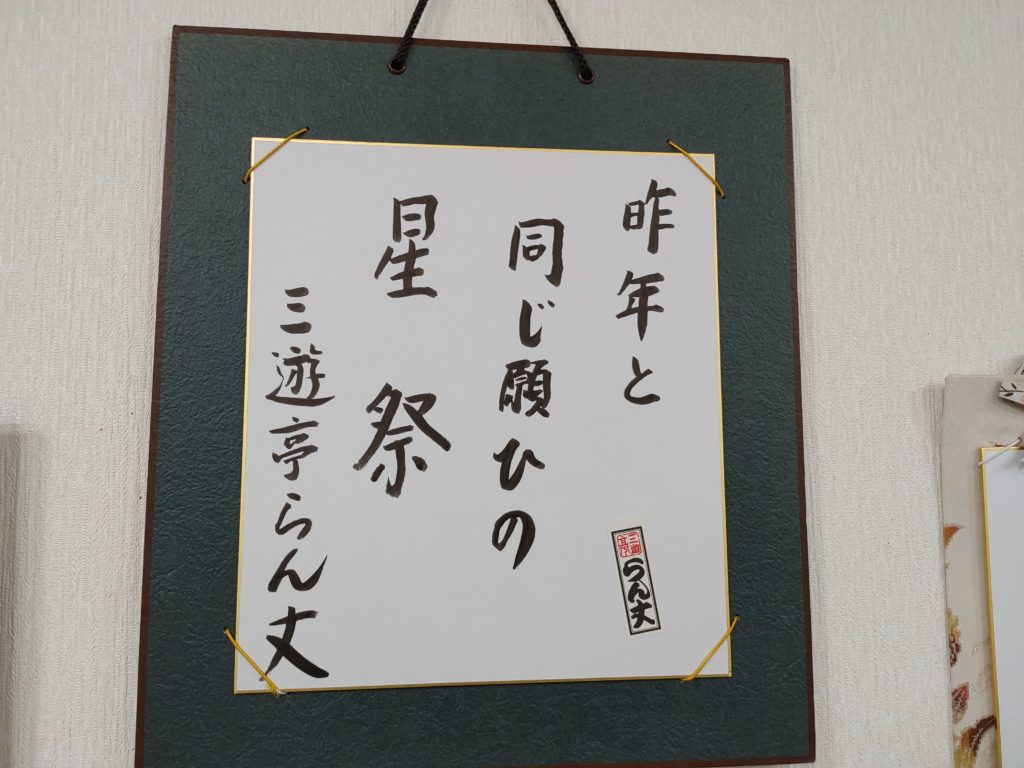 昨年と
同じ願ひの
星祭
三遊亭らん丈
三遊亭
らん丈